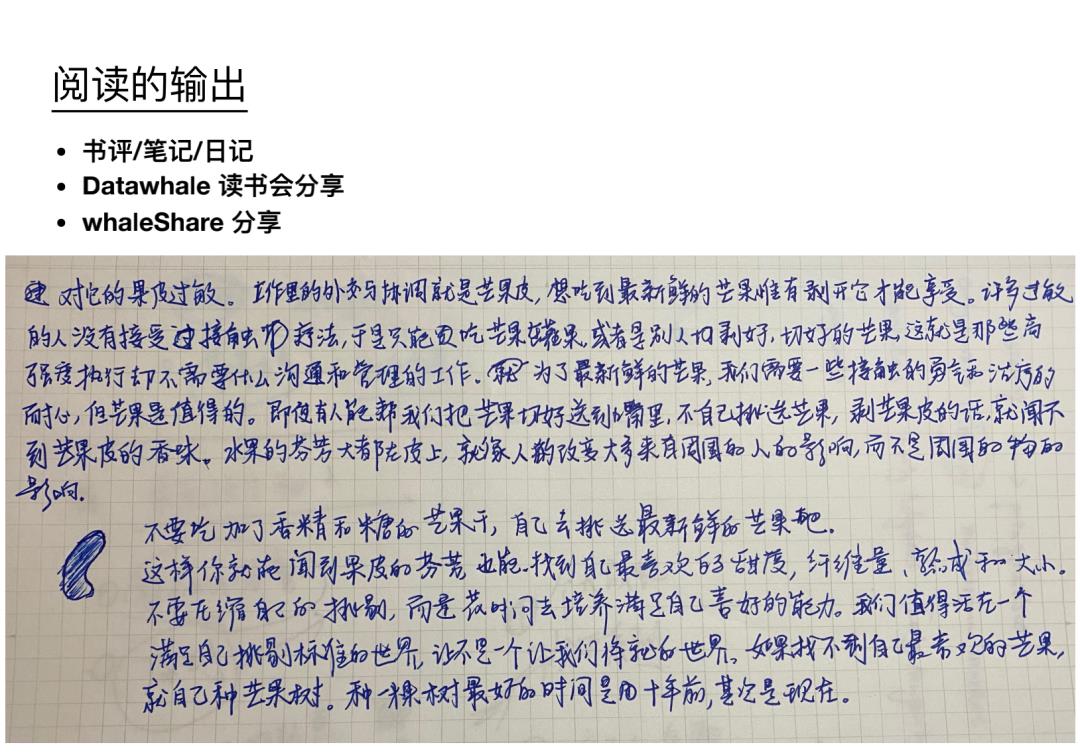 阅读的输出
书评/笔记/日记
Datawhale 读书会分享
whaleShare 分享
对它的果皮过敏。工作里的外交与协调就是芒果皮,想吃到最新鲜的芒果唯有剥开它才能享受。许多过敏
的人没有接受过接触疗法,于是只能买吃芒果罐果,或者是别人切剥好,切好的芒果,这就是那些高
强度执行却不需要什么沟通和管理的工作。为了最新鲜的芒果,我们需要一些接触的勇气和治疗的
耐心,但芒果是值得的。即使有人能帮我们把芒果切好送到嘴里,不自己挑选芒果,剥芒果皮的话,就闻不
到芒果皮的香味。水果的芬芳大都在皮上,就像人的改变大多来自周围的人的影响,而不是周围的物的
影响.
不要吃加了香精和糖的芒果干,自己去挑选最新鲜的芒果吧.
这样你就能闻到果皮的芬芳也能找到自己最喜欢的甜度,纤维量、熟成和大小.
不要压缩自己的挑剔,而是花时间去培养满足自己喜好的能力。我们值得活在一个
满足自己挑剔标准的世界,而不是一个让我们将就的世界。如果找不到自己最喜欢的芒果,
就自己种芒果树。种一棵树最好的时间是十年前,其次是现在。